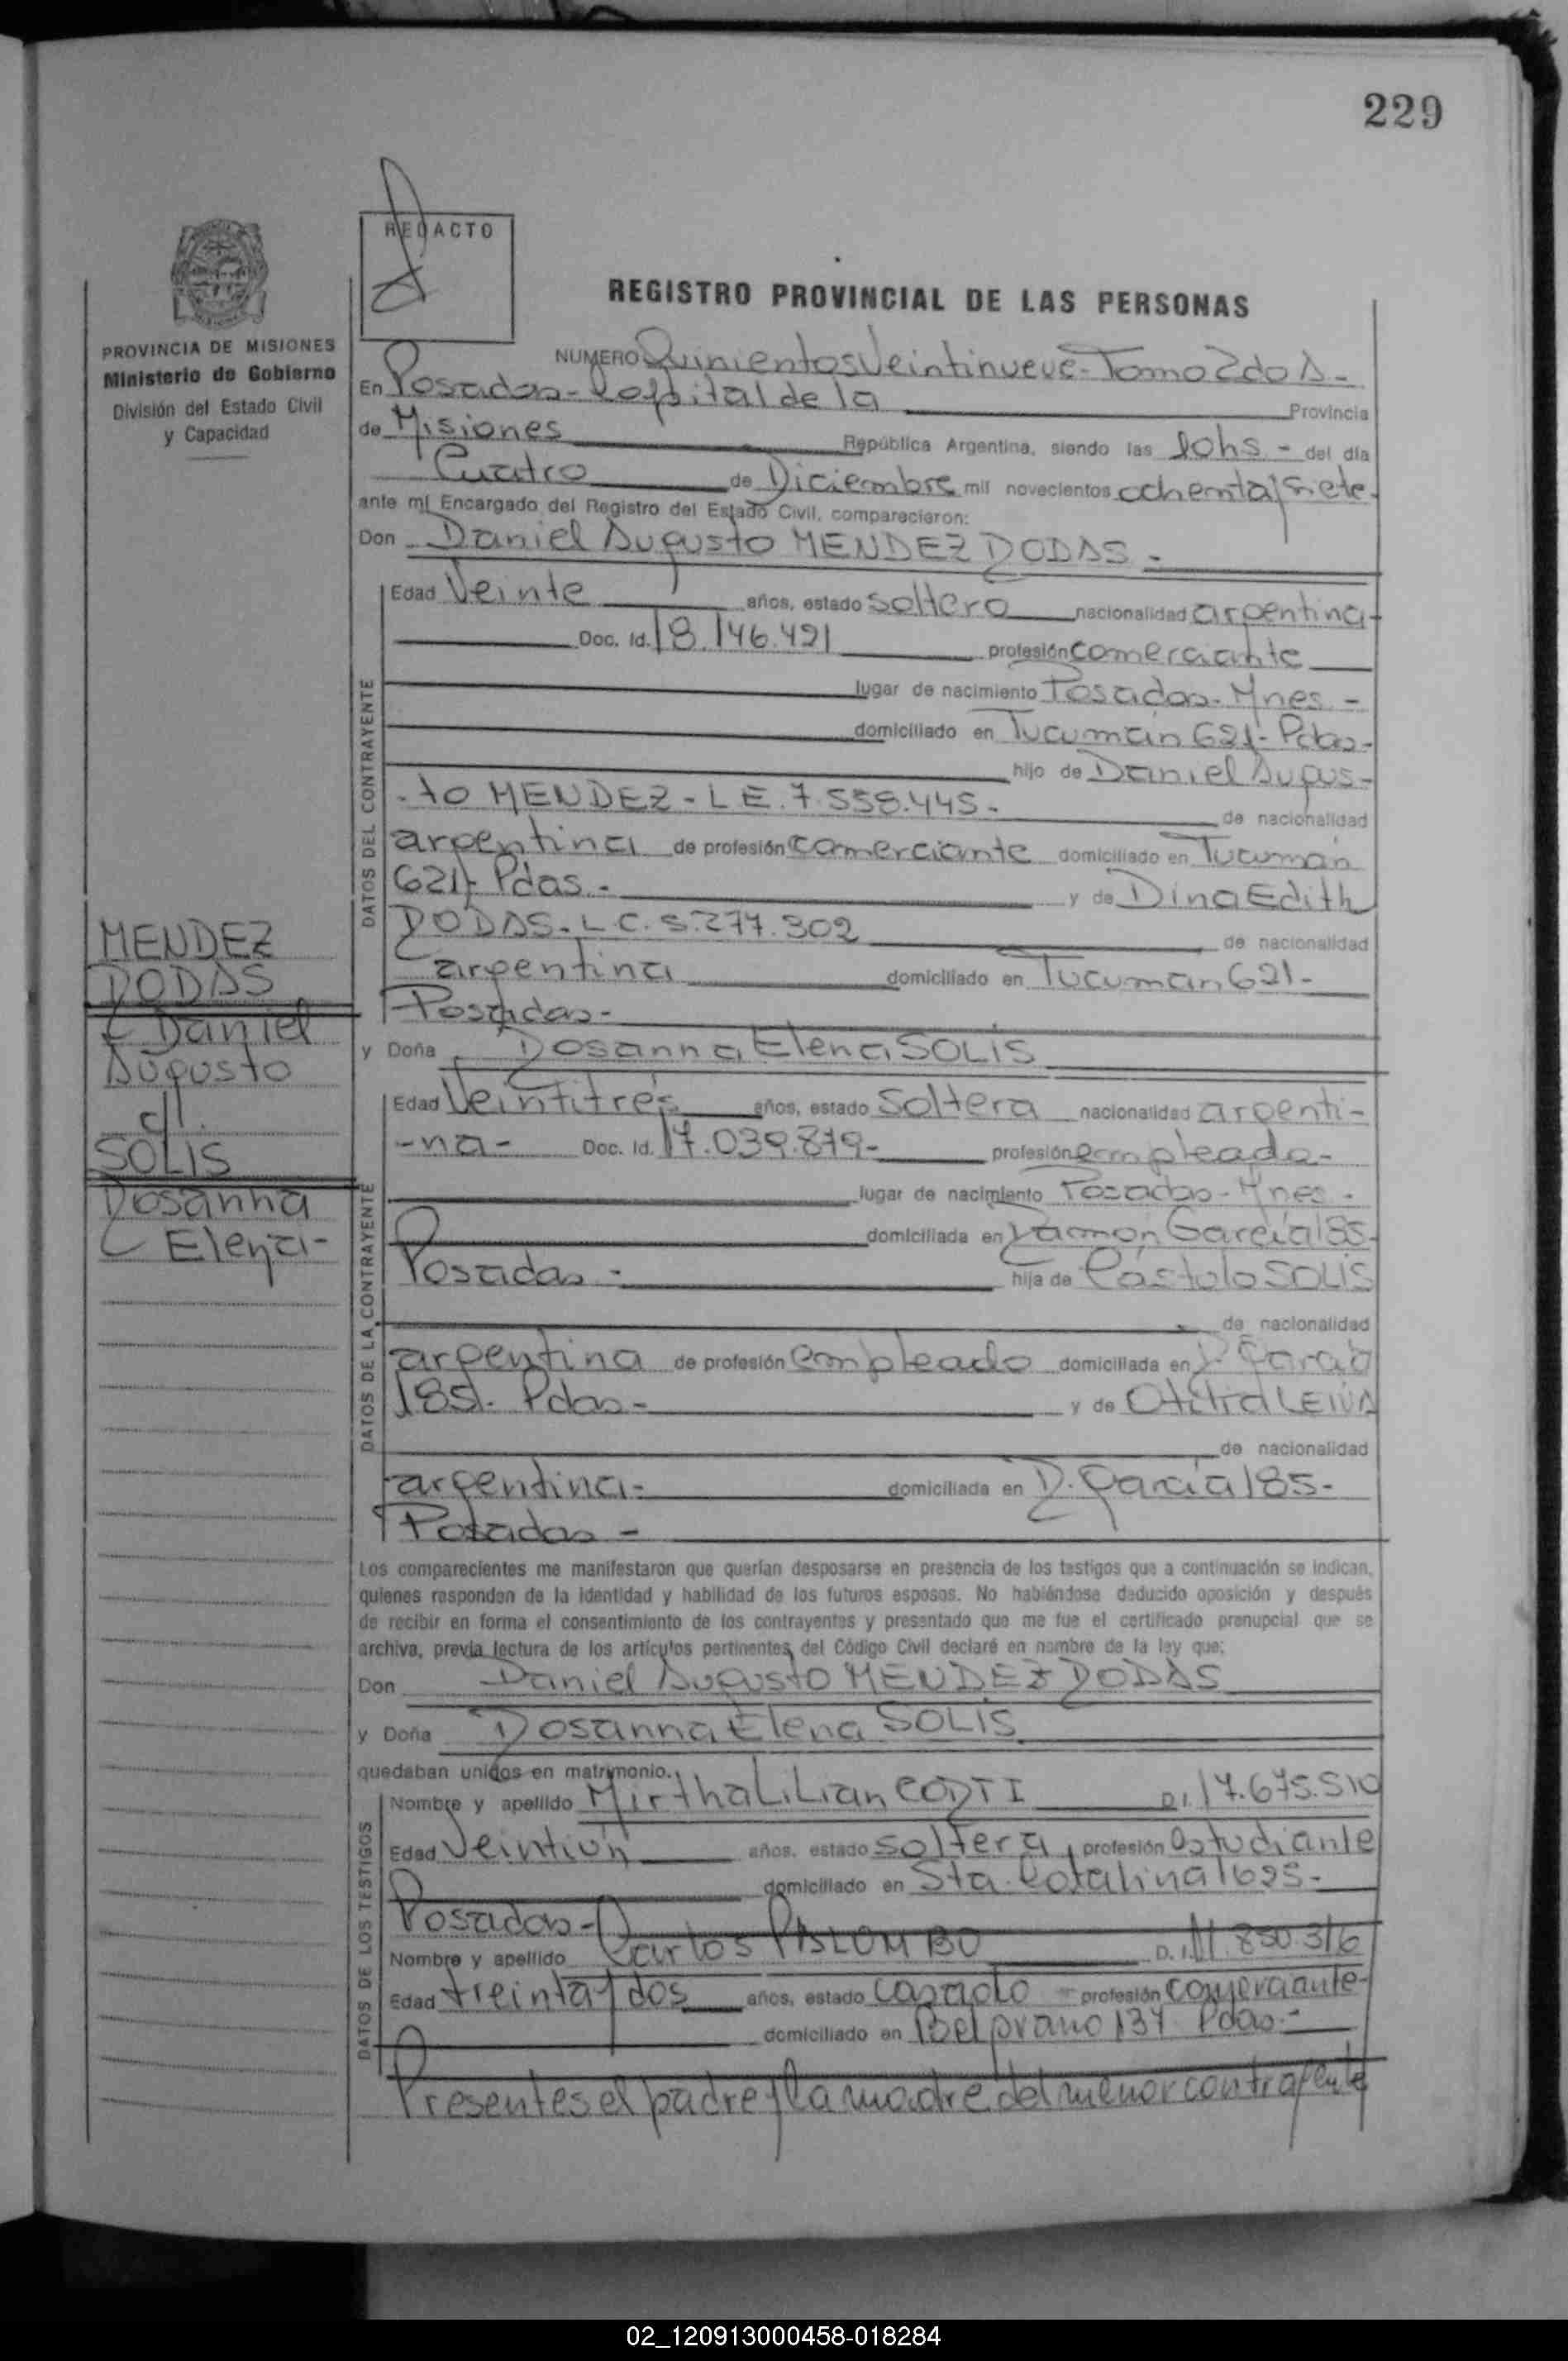 229
REDACTO
REGISTRO PROVINCIAL DE LAS PERSONAS
PROVINCIA DE MISIONES
Ministerio de Gobierno
División del Estado Civil
y Capacidad
NUMERO Quinientos Veintinueve - Tomo 2do A -
En Posadas - Capital de la Provincia
de Misiones República Argentina, siendo las 10hs - del día
Cuatro de Diciembre mil novecientos ochenta y siete -
ante mí Encargado del Registro del Estado Civil, comparecieron:
Don Daniel Augusto MENDEZ RODAS -
DATOS DEL CONTRAYENTE
Edad Veinte años, estado soltero nacionalidad argentina -
Doc. Id. 18.146.491 profesión comerciante
lugar de nacimiento Posadas - Mnes -
domiciliado en Tucumán 621 - Pdas -
hijo de Daniel Augus-
-to MENDEZ - L E. 7.558.445 - de nacionalidad
argentina de profesión comerciante domiciliado en Tucumán
621 - Pdas - y de Dina Edith
RODAS - L.C. 5.277.302 de nacionalidad
argentina domiciliado en Tucuman 621 -
Posadas -
MENDEZ
RODAS
Daniel
Augusto
c/.
SOLIS
Rosanna
Elena -
y Doña Rosanna Elena SOLIS
DATOS DE LA CONTRAYENTE
Edad Veintitrés años, estado soltera nacionalidad argenti-
-na - Doc. Id. 17.039.879 - profesión empleada -
lugar de nacimiento Posadas - Mnes -
domiciliada en Ramón García 185 -
Posadas - hija de Cástulo SOLIS
de nacionalidad
argentina de profesión empleado domiciliada en R. García
185 - Pdas - y de Otilia LEIVA
de nacionalidad
argentina - domiciliada en R. García 185 -
Posadas -
Los comparecientes me manifestaron que querían desposarse en presencia de los testigos que a continuación se indican,
quienes responden de la identidad y habilidad de los futuros esposos. No habiéndose deducido oposición y después
de recibir en forma el consentimiento de los contrayentes y presentado que me fue el certificado prenupcial que se
archiva, previa lectura de los artículos pertinentes del Código Civil declaré en nombre de la ley que:
Don Daniel Augusto MENDEZ RODAS
y Doña Rosanna Elena SOLIS
quedaban unidos en matrimonio.
DATOS DE LOS TESTIGOS
Nombre y apellido Mirtha Lilian D.I. 17.675.510
Edad Veintiún años, estado soltera, profesión estudiante
domiciliado en Sta. Catalina 1695 -
Posadas -
Nombre y apellido Carlos PALOMBO D. I. 11.850.316
Edad treinta y dos años, estado casado - profesión comerciante -
domiciliado en Belgrano 137 Pdas. -
Presentes el padre y la madre del menor contrayente
02_120913000458-018284